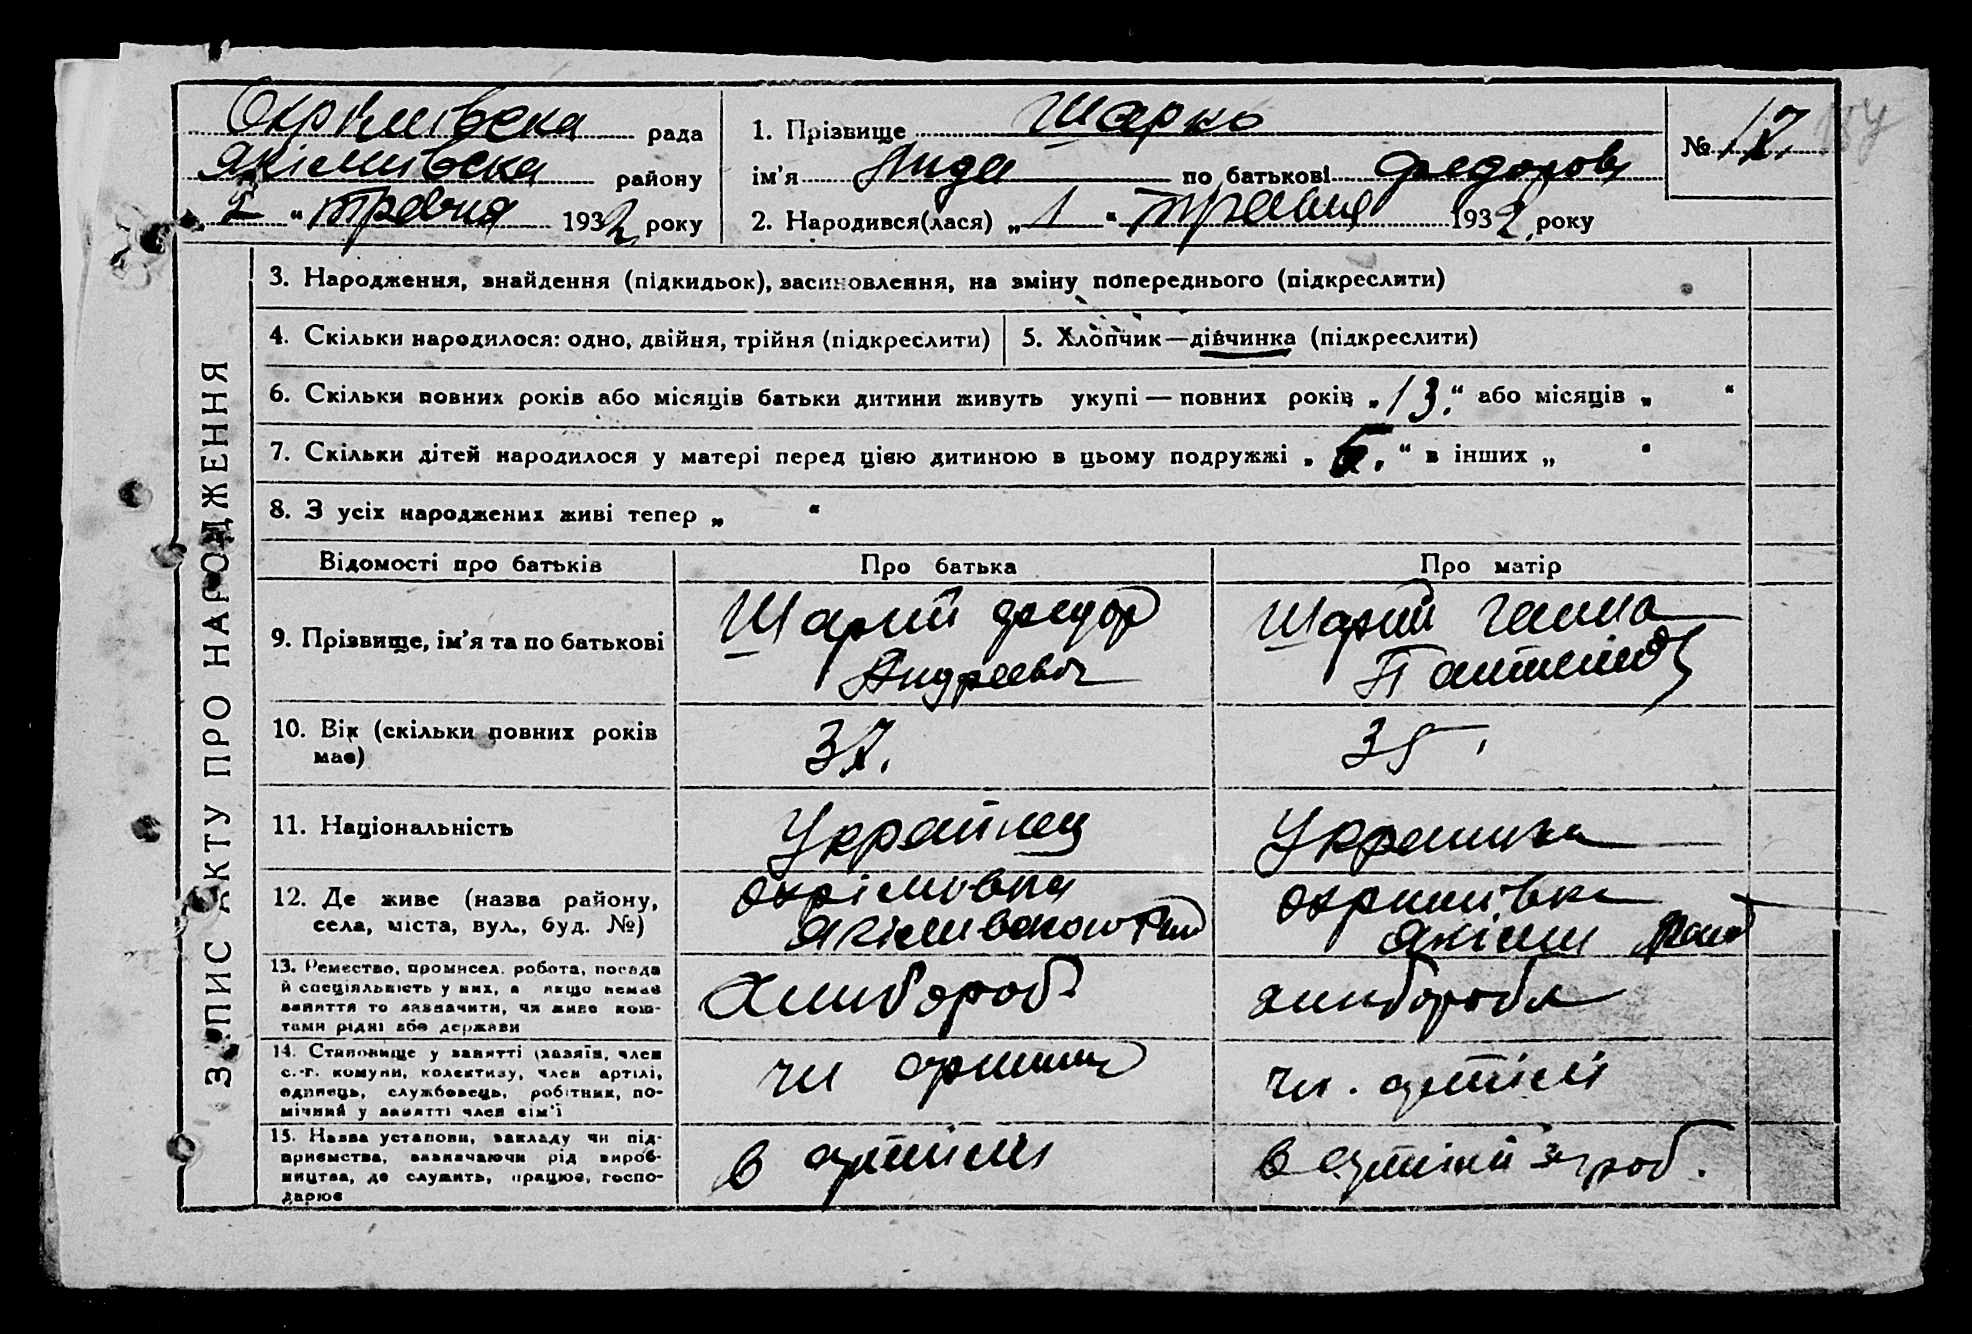 Охрімівська рада
Якімивська району
2 " травня 1932 року
1. Прізвище Шарко
ім'я Лида по батькові Федоров
2. Народився(лася) „ 1 " травня 1932 року
№ 17
ЗАПИС АКТУ ПРО НАРОДЖЕННЯ
3. Народження, знайдення (підкидьок), засиновлення, на зміну попереднього (підкреслити)
4. Скільки народилося: одно, двійня, трійня (підкреслити)
5. Хлопчик—дівчинка (підкреслити)
6. Скільки повних років або місяців батьки дитини живуть укупі — повних років „13." або місяців „ "
7. Скільки дітей народилося у матері перед цією дитиною в цьому подружжі „ " в інших „ "
8. З усіх народжених живі тепер „ "
Відомості про батьків Про батька Про матір
9. Прізвище, ім'я та по батькові
Шарий Федор
Андреевич
Шарий Ганна
10. Вік (скільки повних років
має)
37.
35.
11. Національність
Українец
Украинка
12. Де живе (назва району,
села, міста, вул., буд. №)
Охрімовка
Якімивською Рай
Охримівка
Якіми Район
13. Ремество, промисел, робота, посада
й спеціяльність у них, а якщо немає
заняття то зазначити, чи живе кош-
тами рідні або держави
Хлибороб
хлибороб
14. Становище у занятті (хазяїн, член
с.-г. комуни, колективу, член артілі,
одинець, службовець, робітник, по-
мічний у занятті член сім'ї
чл
чл. артілі
15. Назва установи, закладу чи під-
приємства, зазначаючи рід вироб-
ництва, де служить, працює, госпо-
дарює
в артілі
в артілі